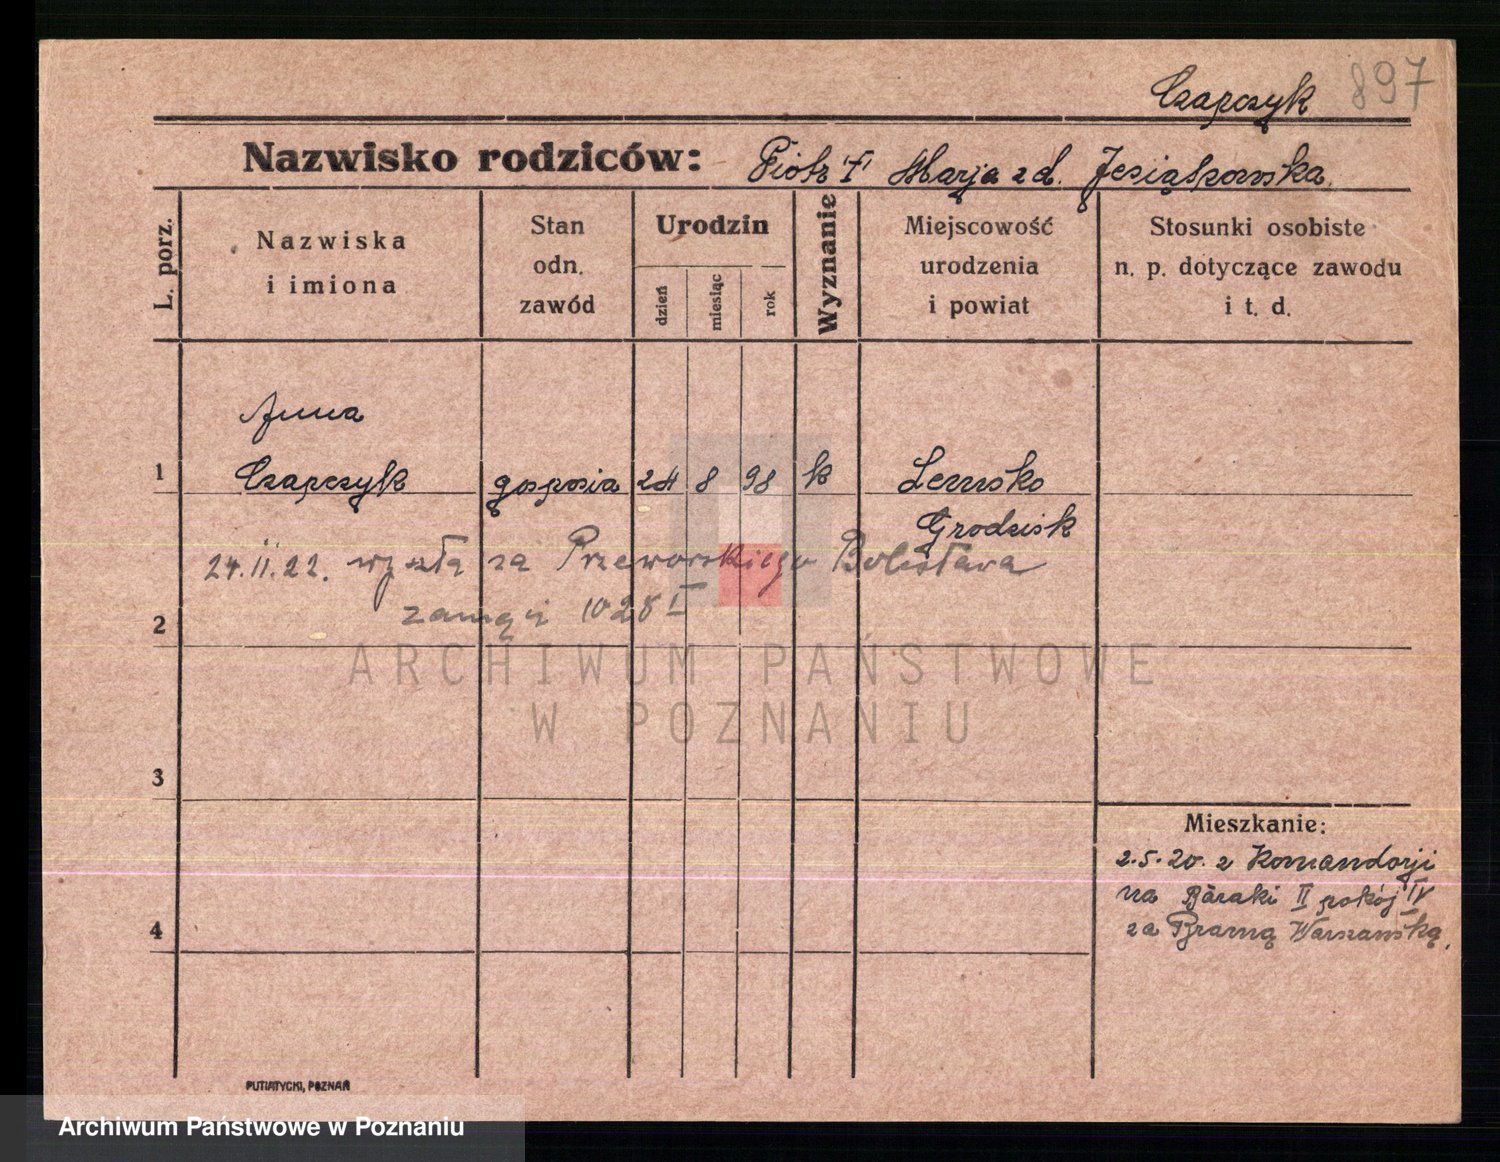 Czapczyk 897
Nazwisko rodziców: Piotr Marja zd.
L. porz.
Nazwiska i imiona
Stan odn. zawód
Urodzin
dzień
miesiąc
rok
Wyznanie
Miejscowość urodzenia i powiat
Stosunki osobiste n. p. dotyczące zawodu i t. d.
Anna
1 Czapczyk gosposia 24 8 98 k
Grodzisk
24.II.22. wyszła za Przeworskiego Bolesława
2 zamąż 1028 I
ARCHIWUM PAŃSTWOWE
W POZNANIU
3
Mieszkanie:
2.5.20. z Komandorji
na Baraki II pokój IV
4 za Bramą Warszawską.
PUTIATYCKI, POZNAŃ
Archiwum Państwowe w Poznaniu